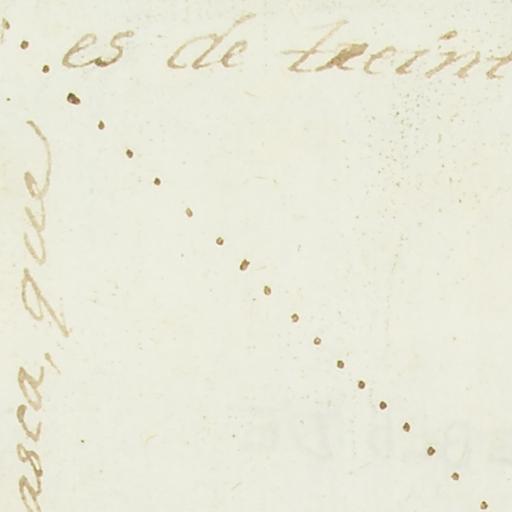 es de treint
asca, que